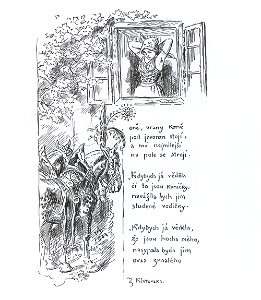 oně, vrany koně
pod javorem stojí,
a můj nejmilejší
na pole se strojí.
Kdybych já věděla
čí to jsou koníčky,
nanosila bych jim
studené vodičky.
Kdybych já věděla,
že jsou hocha mého,
nasypala bych jim
ovsa zrnatého